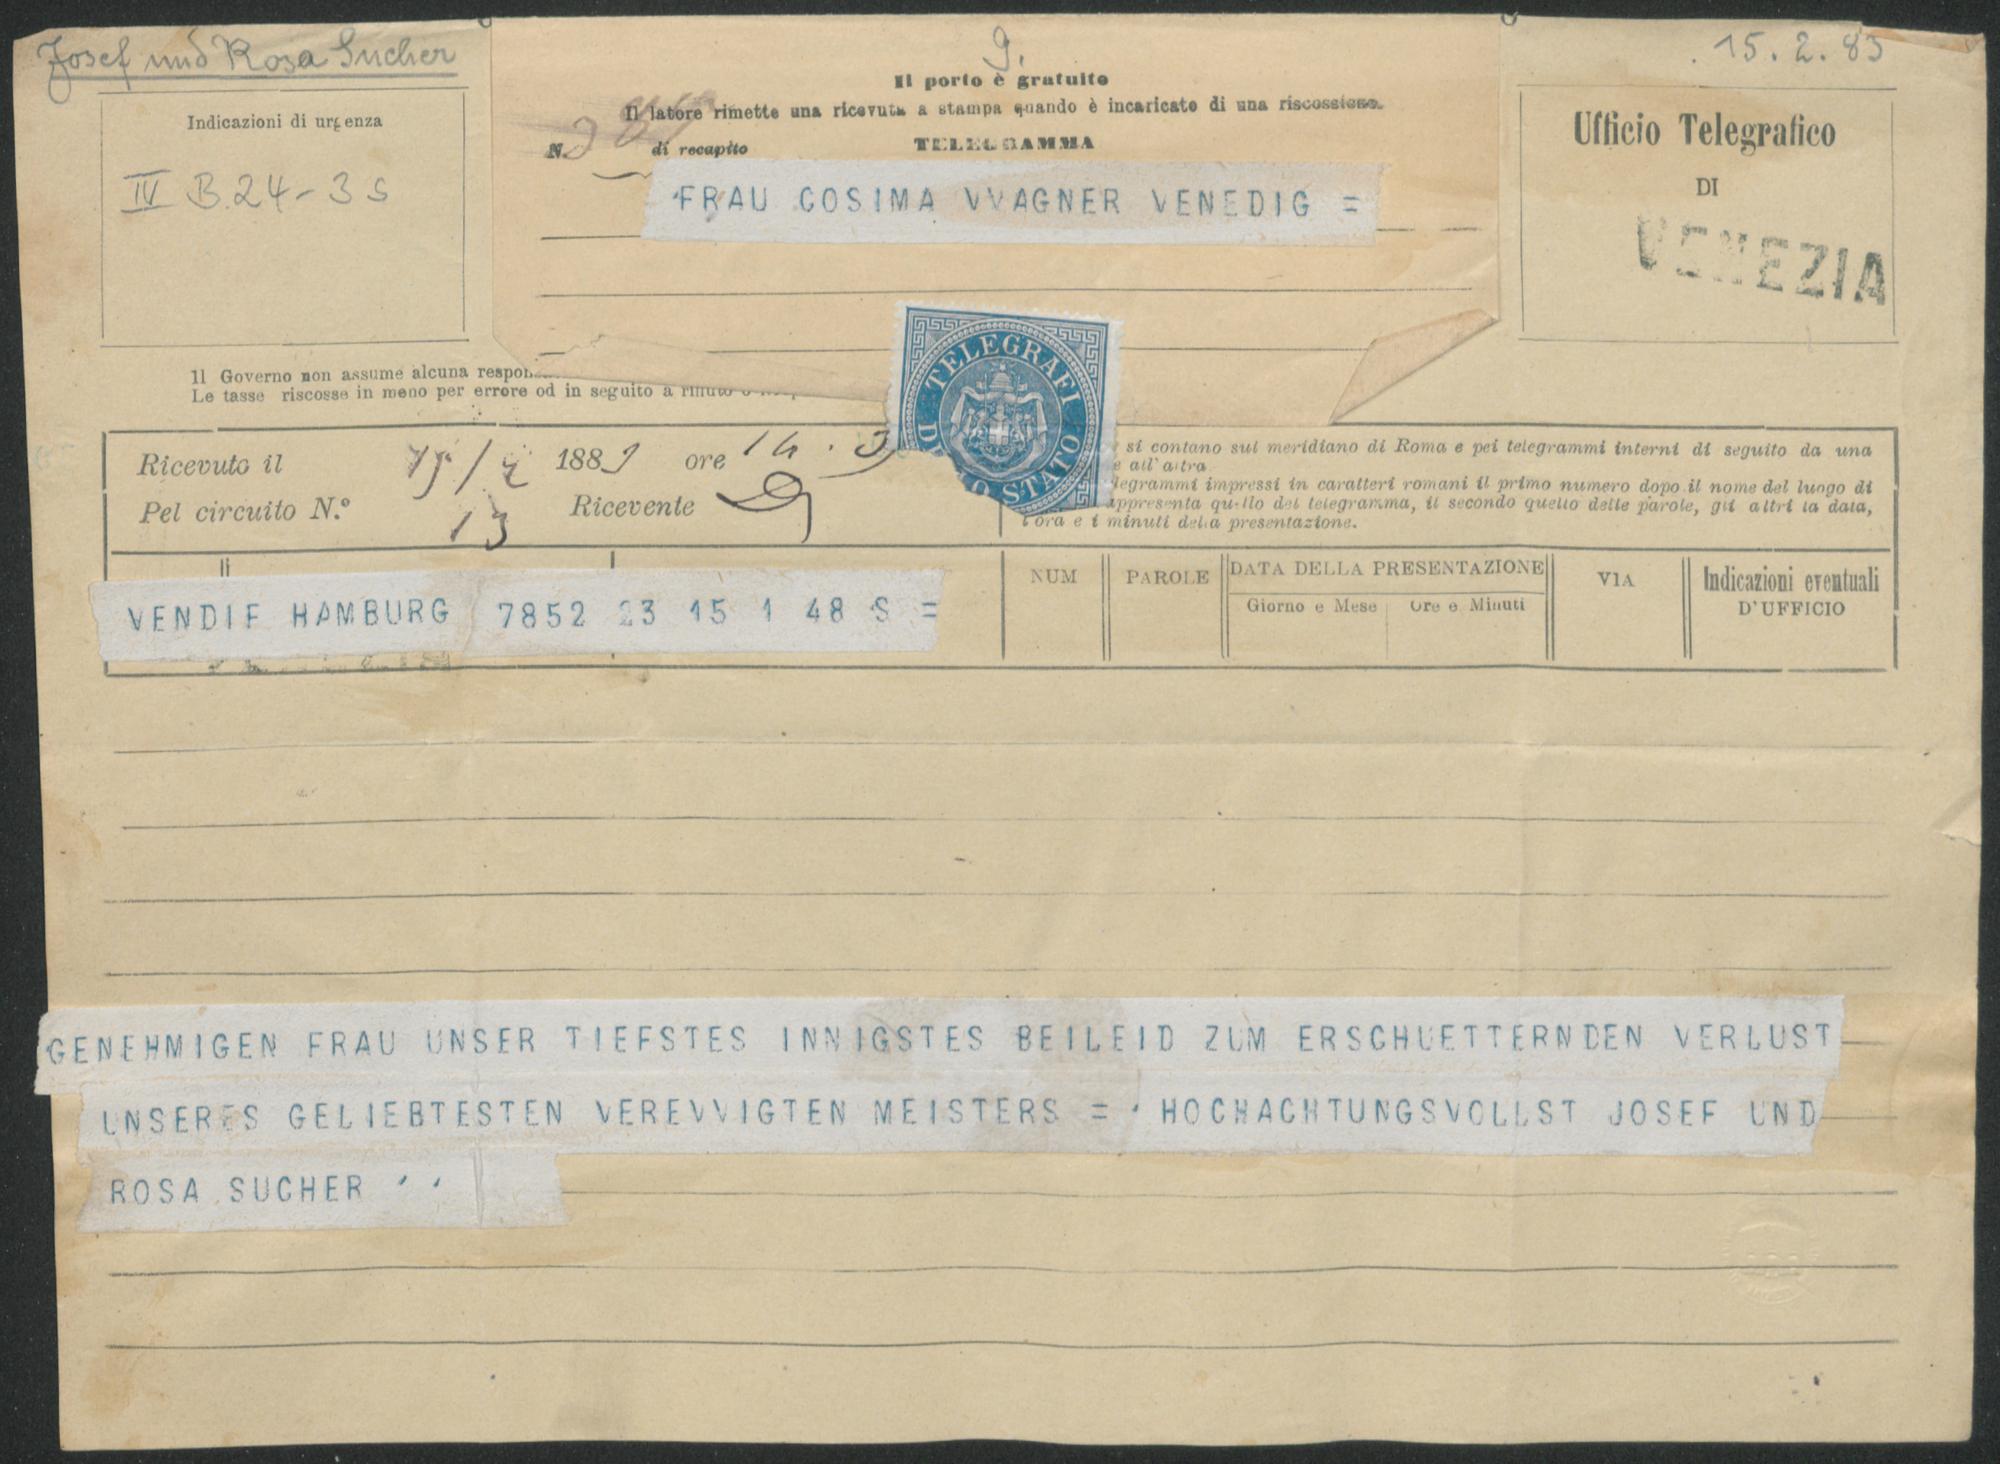 Josef und Rosa Sucher
9.
15.2.83
Indicazioni di urgenza
IV B.24-35
Il porto è gratuito
Il latore rimette una ricevuta a stampa quando è incaricato di una riscossione.
N. di recapito
TELEGRAMMA
FRAU COSIMA VVAGNER VENEDIG =
Ufficio Telegrafico
DI
VENEZIA
Il Governo non assume alcuna
Le tasse riscosse in meno per errore od in seguito a rifiuto o
TELEGRAFI DELLO STATO
Ricevuto il 15/2 1883 ore 14.
Pel circuito N.° 13 Ricevente
si contano sul meridiano di Roma e pei telegrammi interni di seguito da una
e all'altra
legrammi impressi in caratteri romani il primo numero dopo il nome del luogo di
appresenta quello del telegramma, il secondo quello delle parole, gli altri la data,
l'ora e i minuti della presentazione.
NUM PAROLE DATA DELLA PRESENTAZIONE VIA Indicazioni eventuali
Giorno e Mese Ore e Minuti D'UFFICIO
VENDIF HAMBURG 7852 23 15 1 48 S =
GENEHMIGEN FRAU UNSER TIEFSTES INNIGSTES BEILEID ZUM ERSCHUETTERNDEN VERLUST
UNSERES GELIEBTESTEN VEREVVIGTEN MEISTERS = HOCHACHTUNGSVOLLST JOSEF UND
ROSA SUCHER